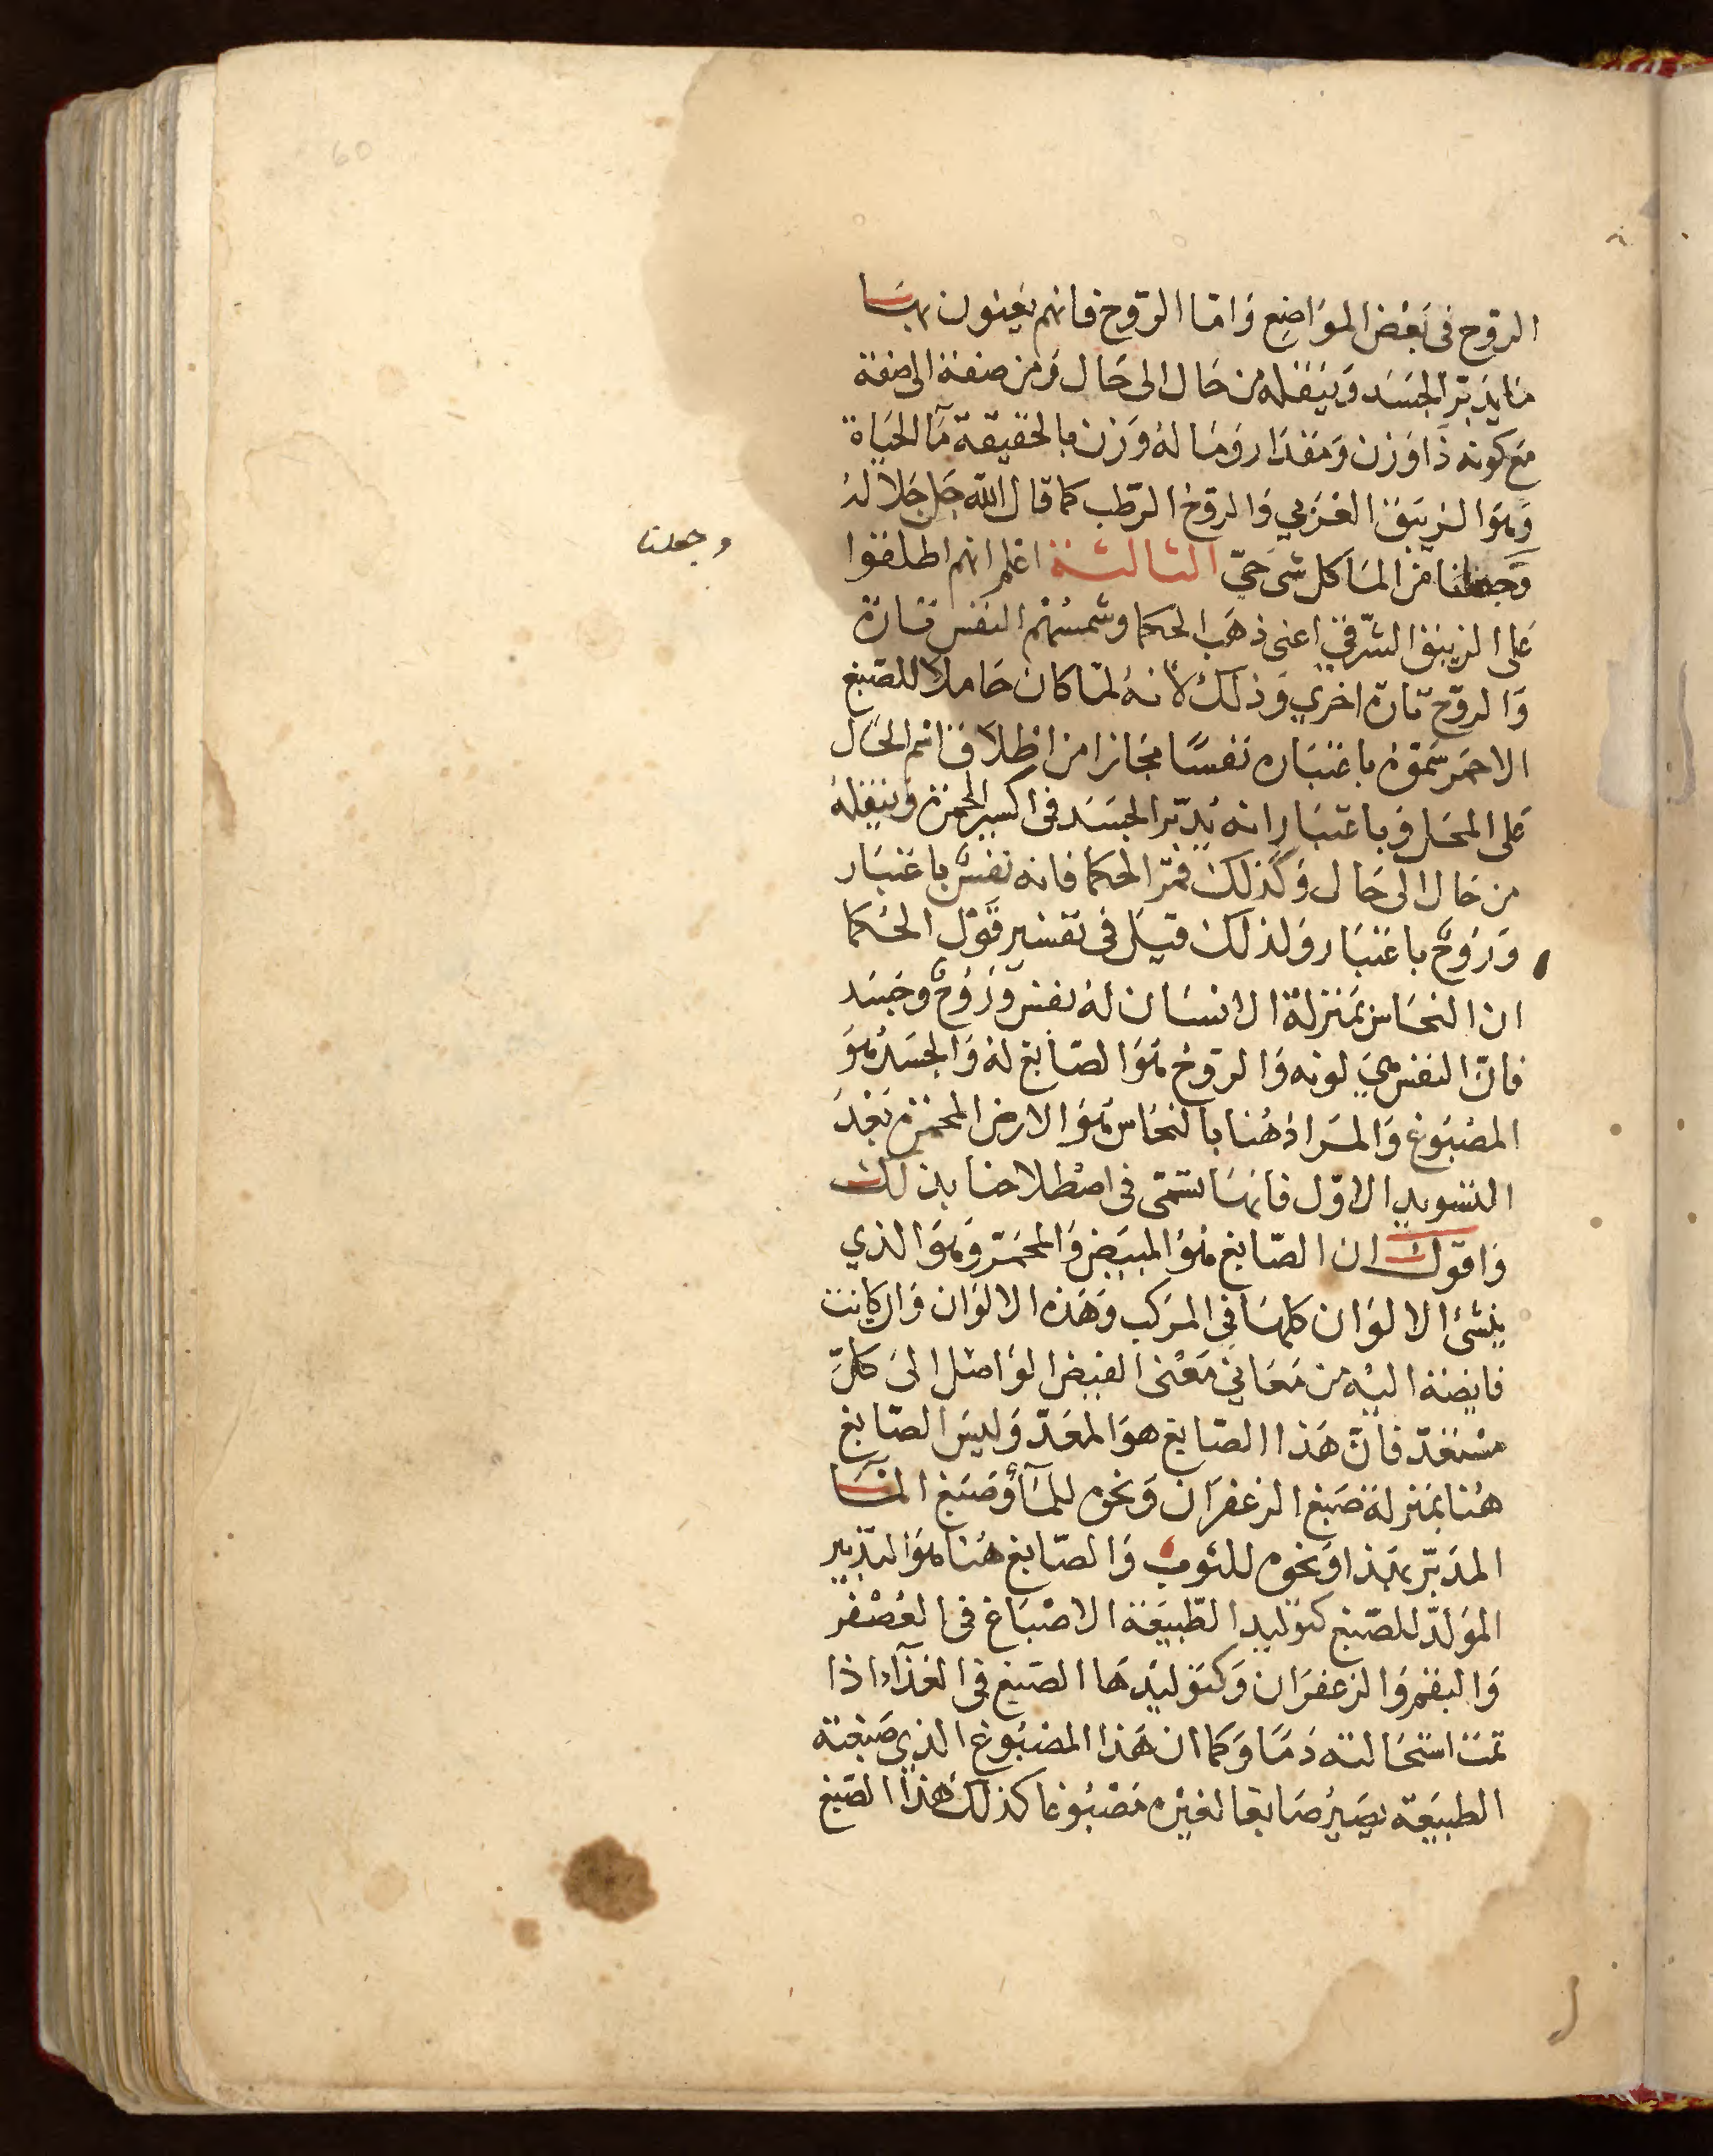 60
الروح فى بعض المواضع وَامّا الروح فانهم يعنون بهَا
مَا يدبّر الجسَد وَينقله من حَال الى حَال وَمن صفة الى صفة
مَع كونه ذَا وَزن وَمقدَار وَمَا لهُ وَزن بالحقيقة مآ الحيَاة
وَهوَ الزيبق الغَربي وَالروحُ الرّطب كما قال الله جَل جَلاله
وَجعلنا من المَا كل شى حَيّ الثالثة اعلم انهم اطلقوا
وجعلنا
عَلى الزيبق الشّرقي اعنى ذهَب الحكما وشمسُهم النفس تارَة
وَالروّح تارة اخري وَذلكَ لانهُ لمّا كان حَاملا للصّبغ
الاحمَر سَموّهُ باعتبَاره نفسًا مجَازا من اطلاَق اسْم الحَال
عَلى المحَل وَباعتبَار انه يُدبّر الجسَد فى اكسير الحمرة وَينقلهُ
من حَال الى حَال وَكذلكَ قمر الحكما فانه نفسٌ باعتبَار
وَرَوحٌ باعتبَار وَلذلكَ قيَل فى تفسير قَوْل الحُكما
ان النحَاس بمَنزلة الانسَان لهُ نفس وَرُوحٌ وجَسَد
فانّ النفس هيَ لونه وَالروحُ هوَ الصّابغ لهُ وَالجسَدُ هوَ
المصْبَوغ وَالمرَادُ هُنا بالنحَاس هَوَ الارض المحمّرة بَعْدَ
التسويد الاوّل فانهَا تسمّى فى اصْطلاحنا بذلكَ
وَاقول ان الصّابغ هوَ المبيّض وَالمحمّر وَهوَ الذي
ينشئ الالوَان كلهَا في المرَكب وَهَذه الالوَان وَان كانت
فايضة اليْه من مَعَاني مَعْنى الفيض الوَاصْل الىَ كلّ
مسْتعدّ فانّ هَذا الصّابغ هوَ المعَدّ وَليسَ الصّابغ
هُنا بمَنزلة صَبغ الزعفرَان وَنحوه للمَآ أوْ صَبغ المَا
المدَبّر بهَذا وَنحوه للثوب وَالصّابغ هُنا هوَ التدْبير
المؤلدّ للصّبغ كتوليد الطّبيعَة الاصْبَاغ فى العُصْفر
وَالبقم وَالزعفرَان وَكتوَليْدهَا الصّبغ في الغذآء اذا
تمت استحَالته دَمَا وَكما ان هَذا المصْبَوغ الذي صَبغته
الطبيَعة يصَيرُ صَابغا لغيْره مَصْبُوغا كذلكَ هذا الصّبغ